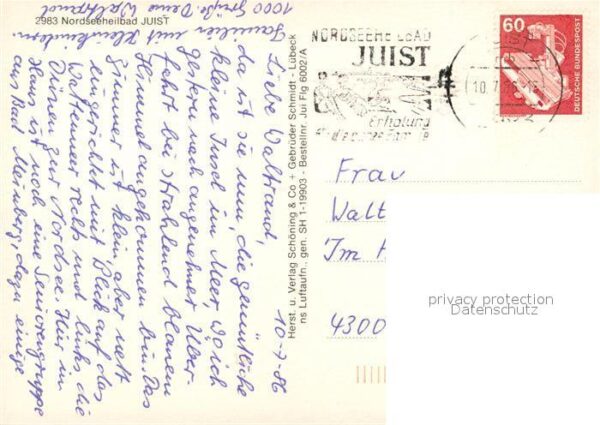 2983 Nordseeheilbad JUIST
10-7-86
Liebe Waltraud,
da ist sie nun, die gemütliche
kleine Insel im Meer, wo ich
gestern nach angenehmer Über-
fahrt bei strahlend blauem
Himmel angekommen bin. Das
Zimmer ist klein, aber nett
eingerichtet mit Blick auf das
Wattenmeer rechts und links die
Dünen zur Nordsee. Hier im
Haus ist noch eine Seniorengruppe
aus Bad Meinberg, dazu einige
Familien mit Kleinkindern.
1000 Grüße Deine Waltraud
Herst. u. Verlag Schöning & Co + Gebrüder Schmidt - Lübeck
ns Luftaufn., gen. SH 1-19903 - Bestellnr. Jui Flg 6002/A
NORDSEEHEILBAD
JUIST
Erholung
für die ganze Familie
10.7.86
60
DEUTSCHE BUNDESPOST
Frau
Walt
Im
4300
privacy protection
Datenschutz